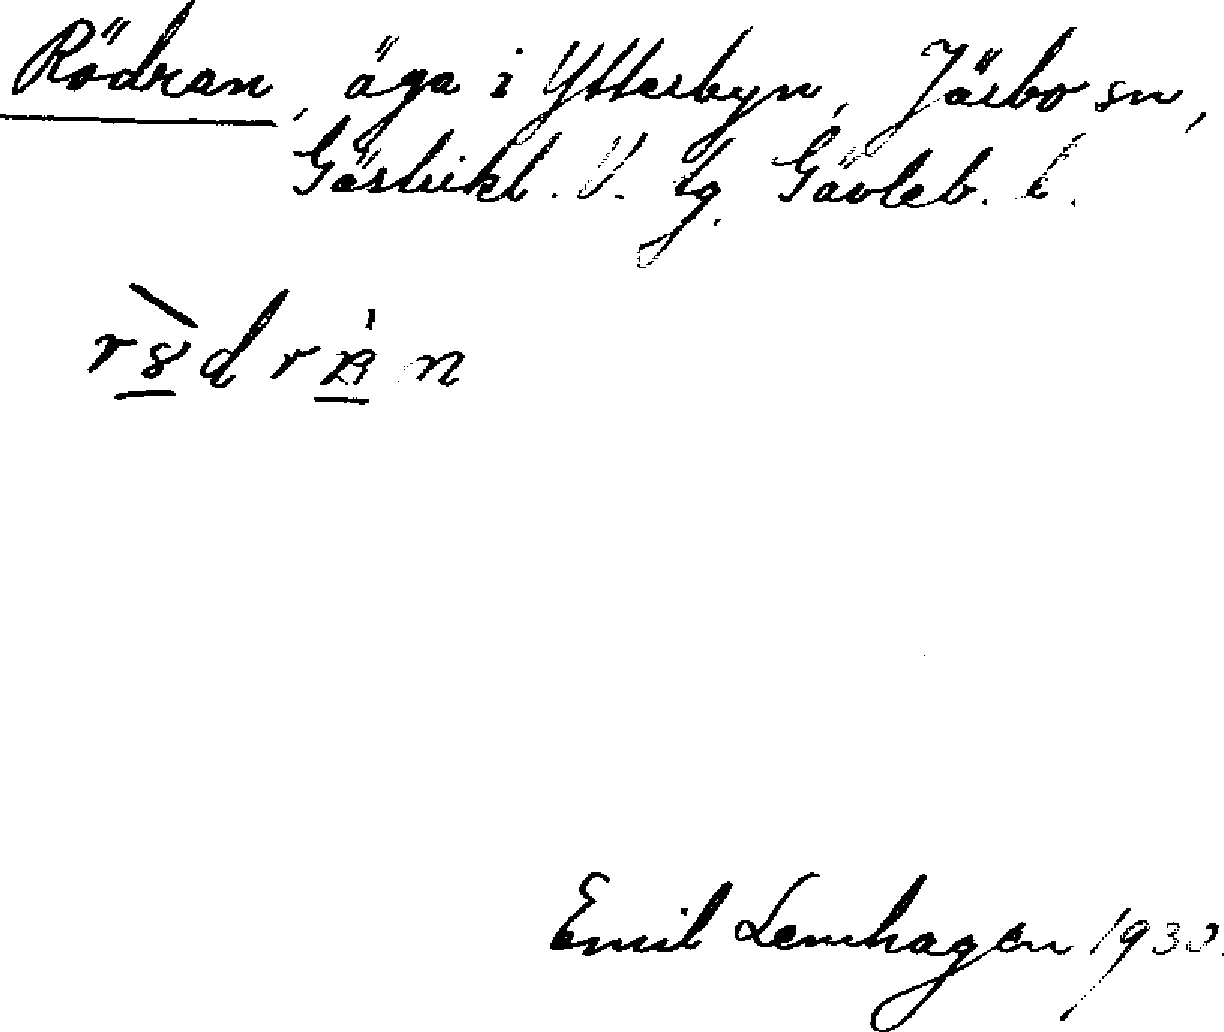 Rödran, äga i Ytterbyn, Järbo sn,
Gästrikl. V. tg. Gävleb. l.
Emil Lemhagen 1930.